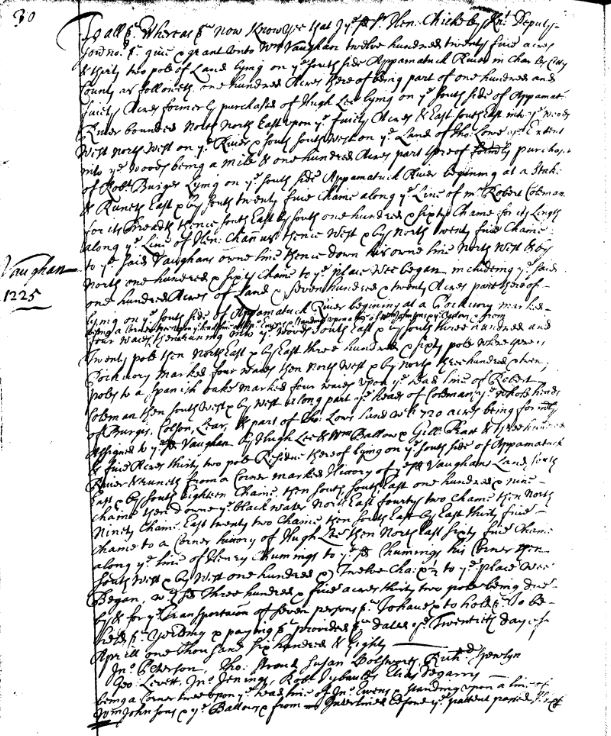 30
To all &c Whereas &c Now Know Yee that I ye sd Sr Hen: Chicheley Knt Deputy
Govrnr &c give & grant unto Wm Vaughan twelve hundred twenty five acres
& thirty two pole of Land lying on ye south side Appamatuck River in Char: City
County as followeth, one hundred Acres there of being part of one hundred and
fivety Acres formerly purchased of Hugh Lee lying on ye south side of Appamat
River bounded North North East upon ye fivety Acres & East South East into ye Woods
West North West on ye River & south south West on ye Land of Tho: Lowe ye Extent
into ye Woods being a mile & one hundred Acres part thereof formerly purchast
of Robt Burges Lying on ye south side Appamatuck River beginning at a Stake
& Runeth East & by South twenty five Chaine along ye Line of mr Robert Coleman
for its Breadth thence South East by South one hundred & sixty Chaine for its Length
along ye Line of Hen: thence West & by North twenty five Chaine
to ye said Vaughans owne line thence down his owne line North West & by
North one hundred & sixty Chaine to ye place Wee began including ye said
one hundred Acres of Land & Seven hundred & twenty Acres part thereof
Vaughan
1225
lying on ye South side of Appamatuck River beginning at a Hickory marked
being a Corner tree upon ye head line of Jno Ewens & standing upon a line of Wm Johnsons & ye Ballows & from
four wayes thence runing into ye Woods South East & by South three hundred and
Twenty pole then North East & by East three hundred & sixty pole where
Hickory marked four wayes then North West & by North three hundred
poles to a Spanish oake marked four wayes upon ye head line of Robert
Coleman then South West & by West along part ye head of Coleman
of Burges, Colson, Lear, & part of Tho: Lows land wch 720 acres being formerly
assigned to ye sd Vaughan by Hugh Lee & Wm Ballow & Gill: Platt & three hundred
& five Acres thirty two pole Residue thereof lying on ye South side of Appamatuck
River & runeth from a Corner marked Hicory of ye sd Vaughans Land, South
East & by South Eighteen Chaine then South South East one hundred & nine
Chaine thence ye black water North East fourty two Chaine then North
Ninety Chaine East twenty two Chaine then South East by East thirty five
Chaine to a Corner hicory of Hugh Lee then North East sixty five Chaine
along ye line of Henry Chummings to ye sd Chummings his Corner then
South West & by West one hundred & Twelve Chaine to ye place Wee
Began, wch sd Three hundred & five acres thirty two pole being due
by & for ye Transportation of seven persons &c To have & to hold &c To be
held &c Yeilding & paying &c provided &c dated ye Twentieth day of
Aprill one thousand six hundred & Eighty
Jno Peterson, Tho: Stroud, Susan Richd Hewlyn
Geo: Levett, Jno Jenings, Robt Eliz
being a Corner tree upon ye head line of Jno Ewens & standing upon a line of
Wm Johnsons & ye Ballows & from Interlined before ye pattent passed